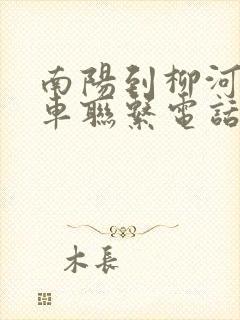 南陽到柳河
車聯繫電話
木長